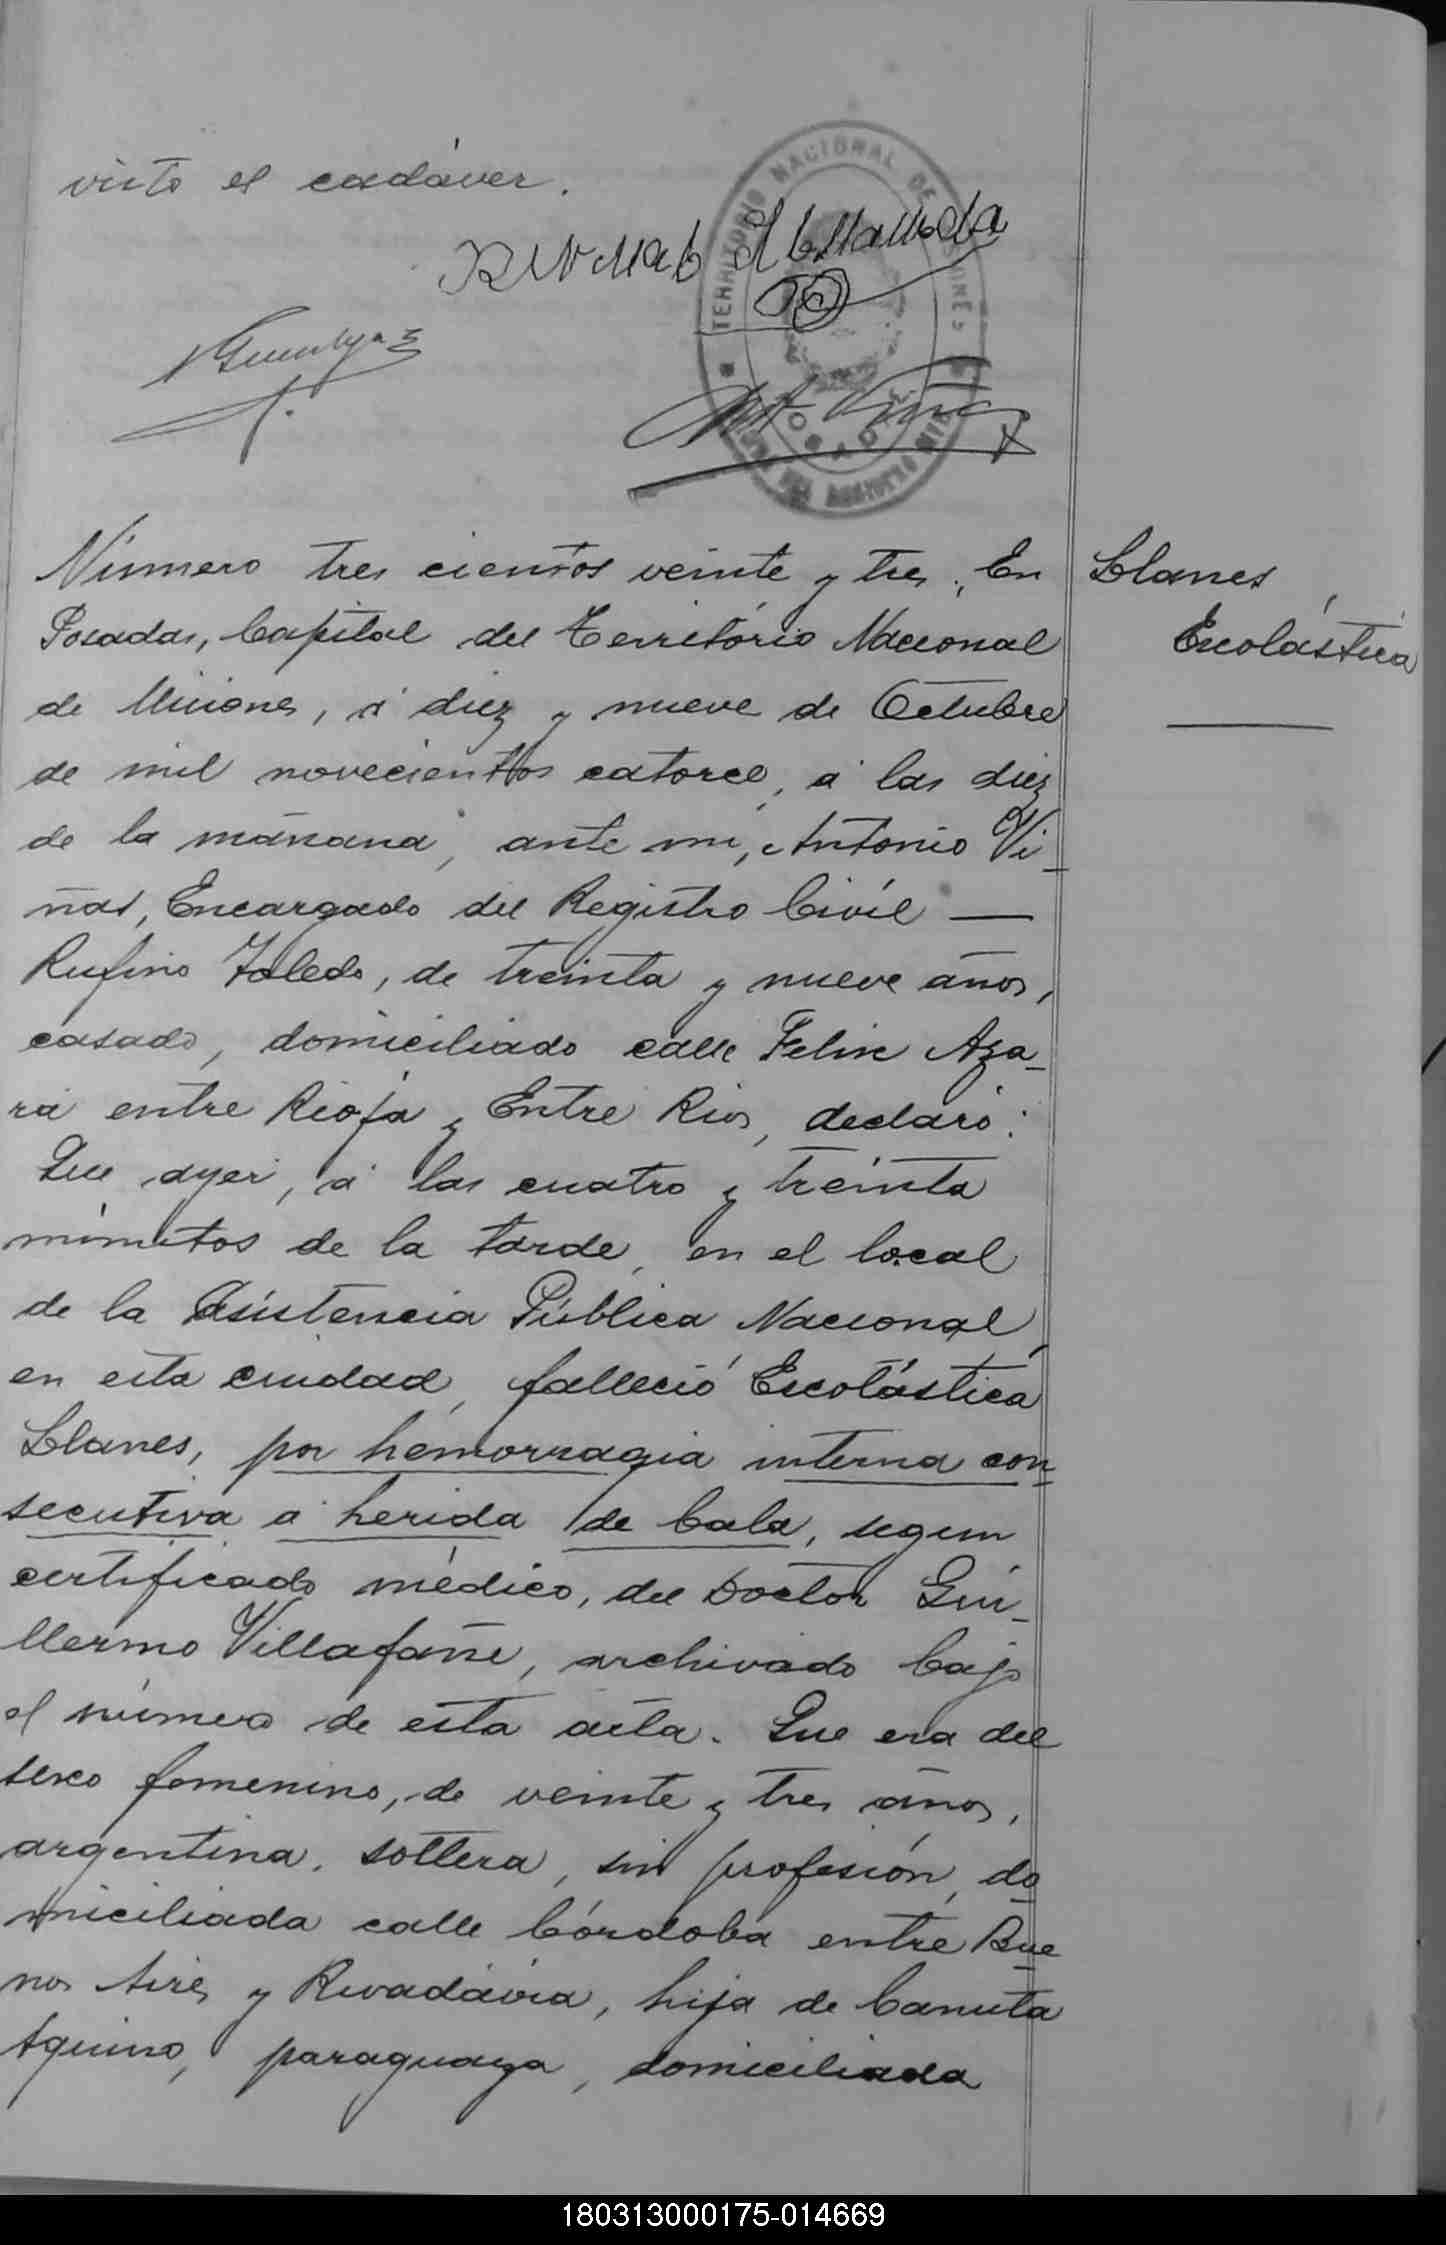 visto el cadáver.
TERRITORIO NACIONAL DE MISIONES
POSADAS
Número tres cientos veinte y tres. En
Llanes,
Posadas, Capital del Territorio Nacional
Escolástica
de Misiones, á diez y nueve de Octubre
de mil novecientos catorce, á las diez
de la mañana, ante mi, Antonio Vi-
ñas, Encargado del Registro Civil —
Rufino Toledo, de treinta y nueve años,
casado, domiciliado calle Felix Aza-
ra entre Rioja y Entre Rios, declaró:
Que ayer, á las cuatro y treinta
minutos de la tarde, en el local
de la Asistencia Pública Nacional,
en esta ciudad, falleció Escolástica
Llanes, por hemorragia interna con-
secutiva á herida de bala, segun
certificado médico, del Doctor Gui-
llermo Villafañe, archivado bajo
el número de esta acta. Que era del
sexo femenino, de veinte y tres años,
argentina, soltera, sin profesión, do-
miciliada calle Córdoba entre Bue-
nos Aires y Rivadavia, hija de Canuta
Aquino, paraguaya, domiciliada
180313000175-014669